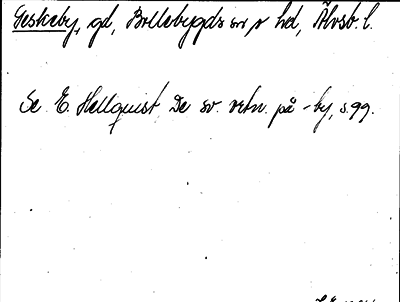 Geskeby, gd, Bollebygds sn o hd, Älvsb. l.
Se E. Hellquist, De sv. ortn. på -by, s. 99.